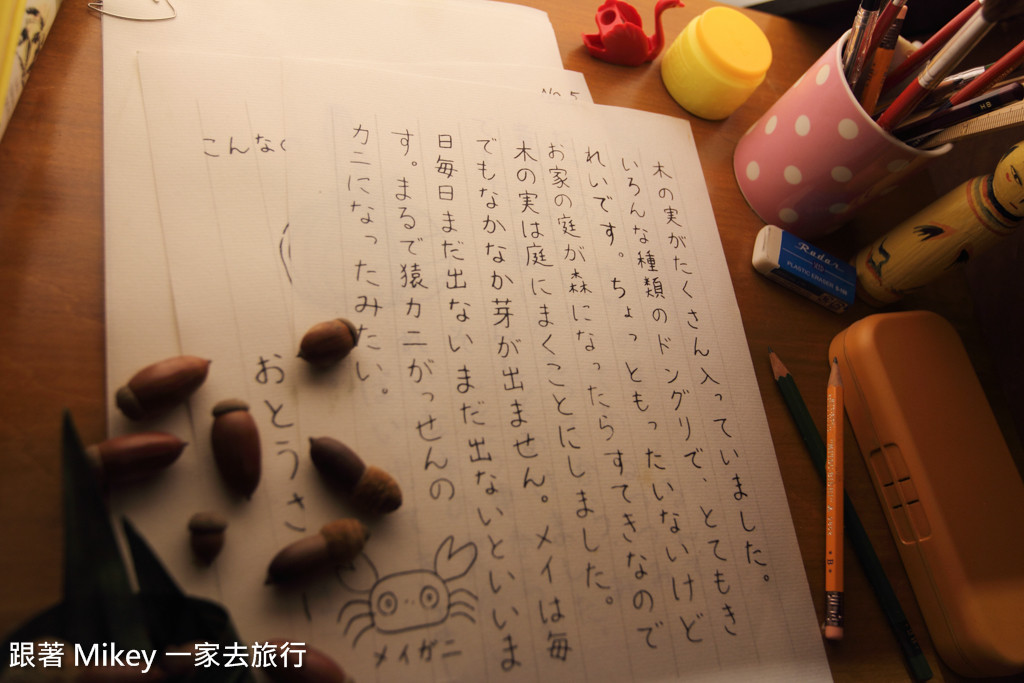 No 5
木の実がたくさん入っていました。
いろんな種類のドングリで、とてもき
れいです。ちょっともったいないけど
お家の庭が森になったらすてきなので
木の実は庭にまくことにしました。
でもなかなか芽が出ません。メイは毎
日毎日まだ出ないまだ出ないといいま
す。まるで猿カニがっせんの
カニになったみたい。
おとうさ
こんな
メイガニ
Radar
PLASTIC ERASER
跟著 Mikey 一家去旅行